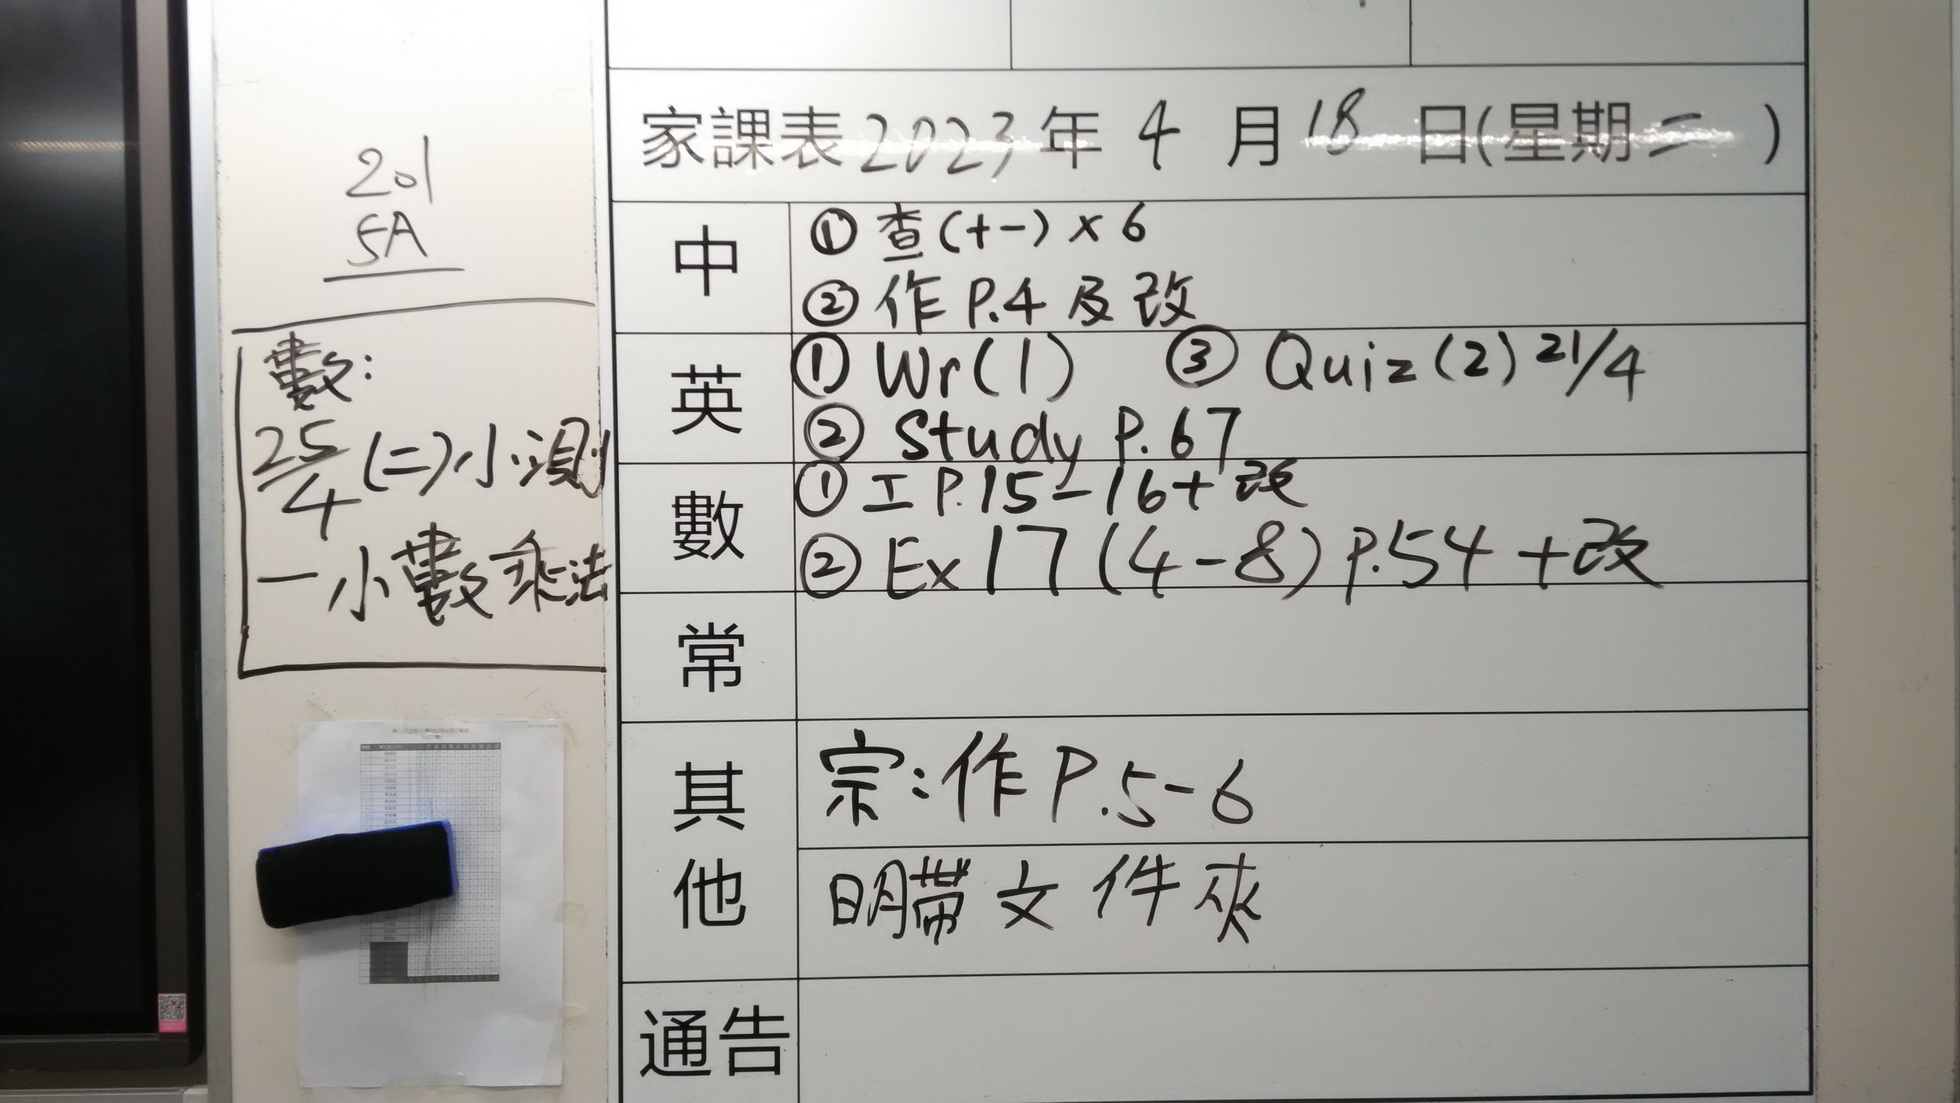 201
5A
數:
25/4(二)小測
一小數乘法
家課表2023年4月18日(星期二)
中
① 查(十一)×6
② 作 P.4 及改
英
① Wr(1) ③ Quiz(2) 21/4
② Study P.67
數
① 工 P.15-16+改
② Ex 17 (4-8) P.54 +改
常
其他
宗:作 P.5-6
明帶文件夾
通告